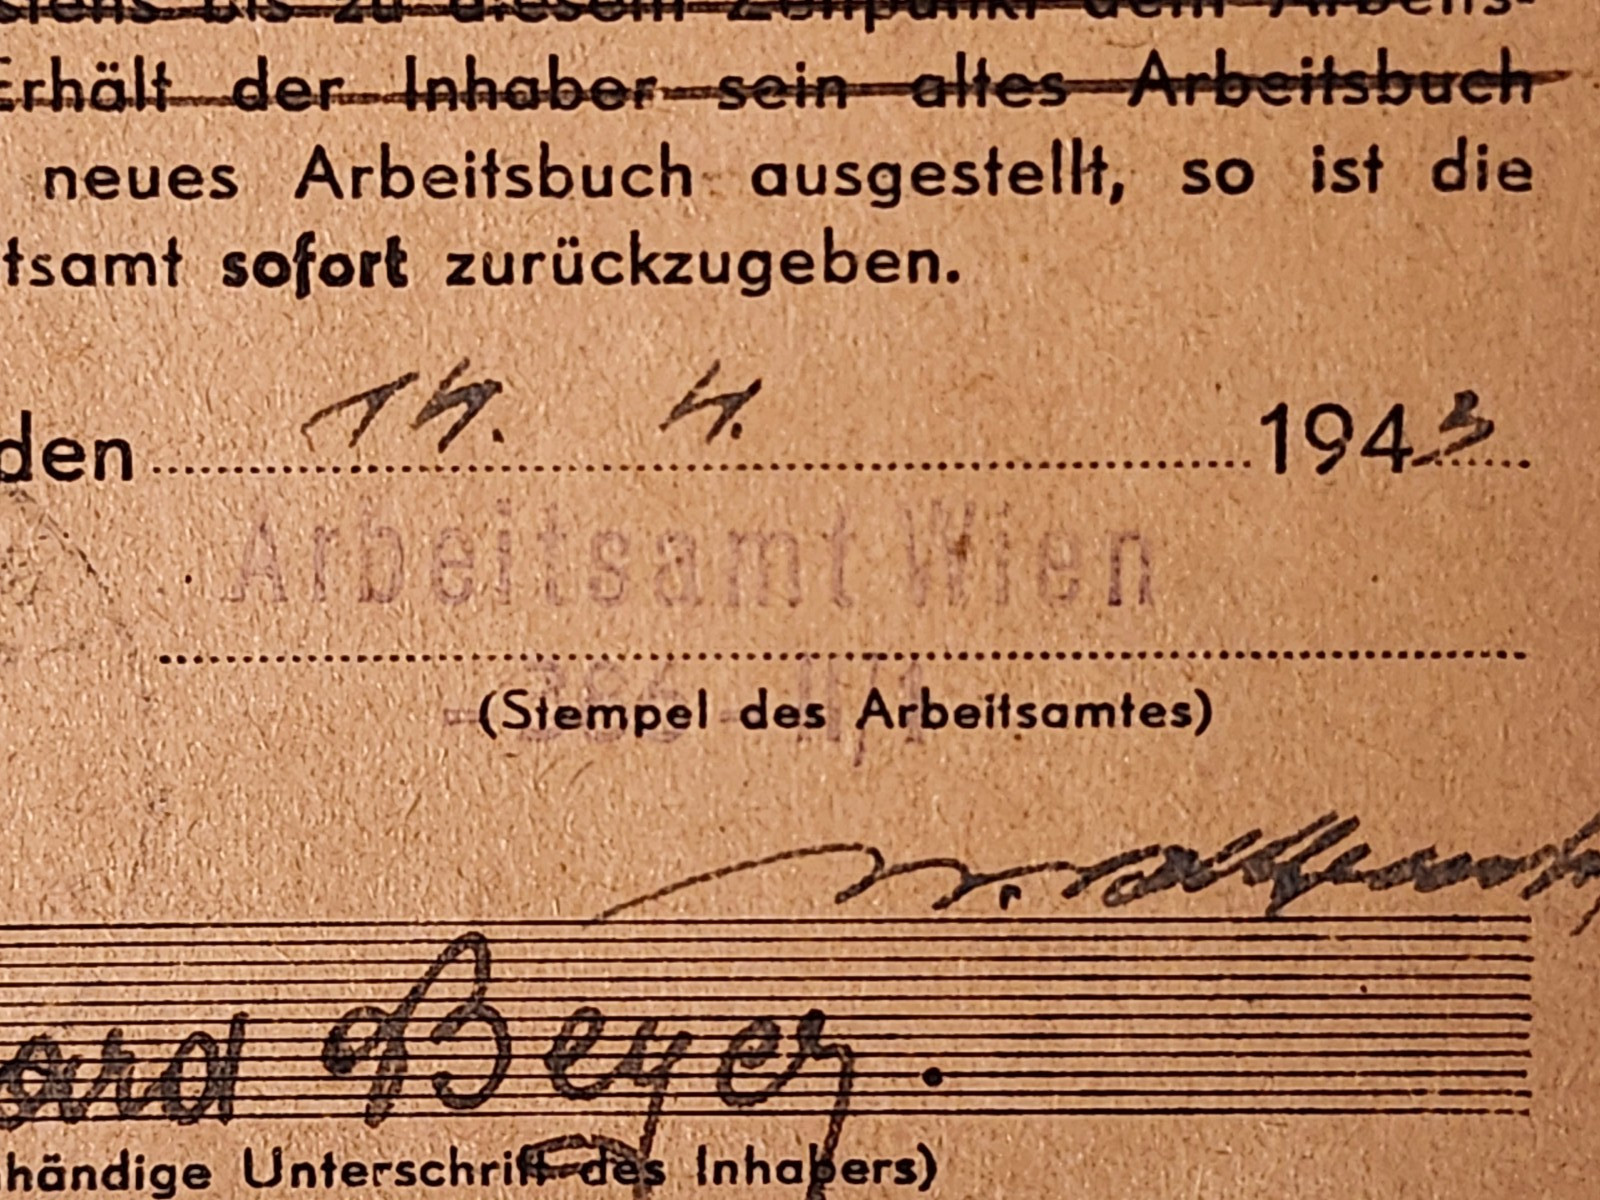 stens bis zu diesem Zeitpunkt dem Arbeits-
Erhält der Inhaber sein altes Arbeitsbuch
neues Arbeitsbuch ausgestellt, so ist die
tsamt sofort zurückzugeben.
den 14. 4. 1943
Arbeitsamt Wien
(Stempel des Arbeitsamtes)
ard Beyer.
nhändige Unterschrift des Inhabers)